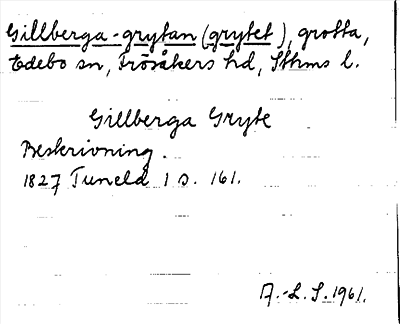 Gillberga-grytan (grytet), grotta,
Edebo sn, Frösåkers hd, Sthms l.
Gillberga Gryte
Beskrivning.
1827 Tuneld 1 s. 161.
A.-L. S. 1961.